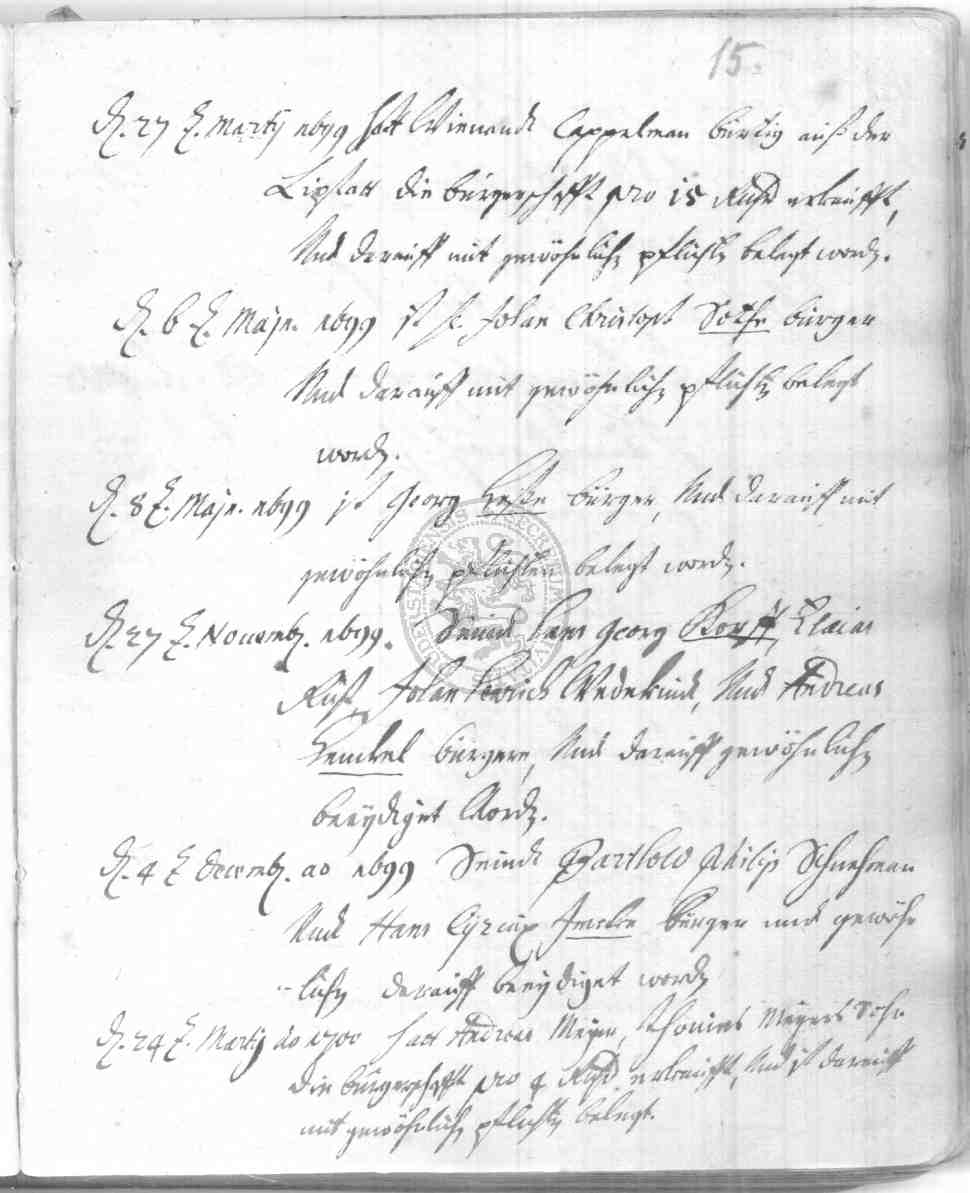 15.
D. 27 t. Martij 1699 hatt Wienandt Cappelman bürtig auß der
Lipstatt die bürgerschafft pro 15 Rthlr erkaufft,
Und darauff mit gewöhnlichen pflichten belegt worden.
D. 6 t. Maji. 1699 ist H. Johan Christoph Bürger
Und darauff mit gewöhnlichen pflichten belegt
worden.
D. 8 t. Maji. 1699 ist Georg Heße bürger, Und darauff mit
gewöhnlichen pflichten belegt worden.
D. 27 t. Novemb. 1699. Seind Hans Georg Korff,
Johan Henrich Wedekindt, Und Andreas
Henckel bürgere, Und darauff gewöhnlichen
beeydiget Worden.
D. 4 t Decemb. ao 1699 Seindt Barthold Philip Schnehman
Und Hans bürger und gewöhn
-lichen darauff beeydiget worden
D. 24 t. Martij ao 1700 hatt Andreas Meyer, Thonies Meyers Sohn
die bürgerschafft pro 4 Rthlr. erkaufft, Und ist darauff
mit gewöhnlichen pflichten belegt.